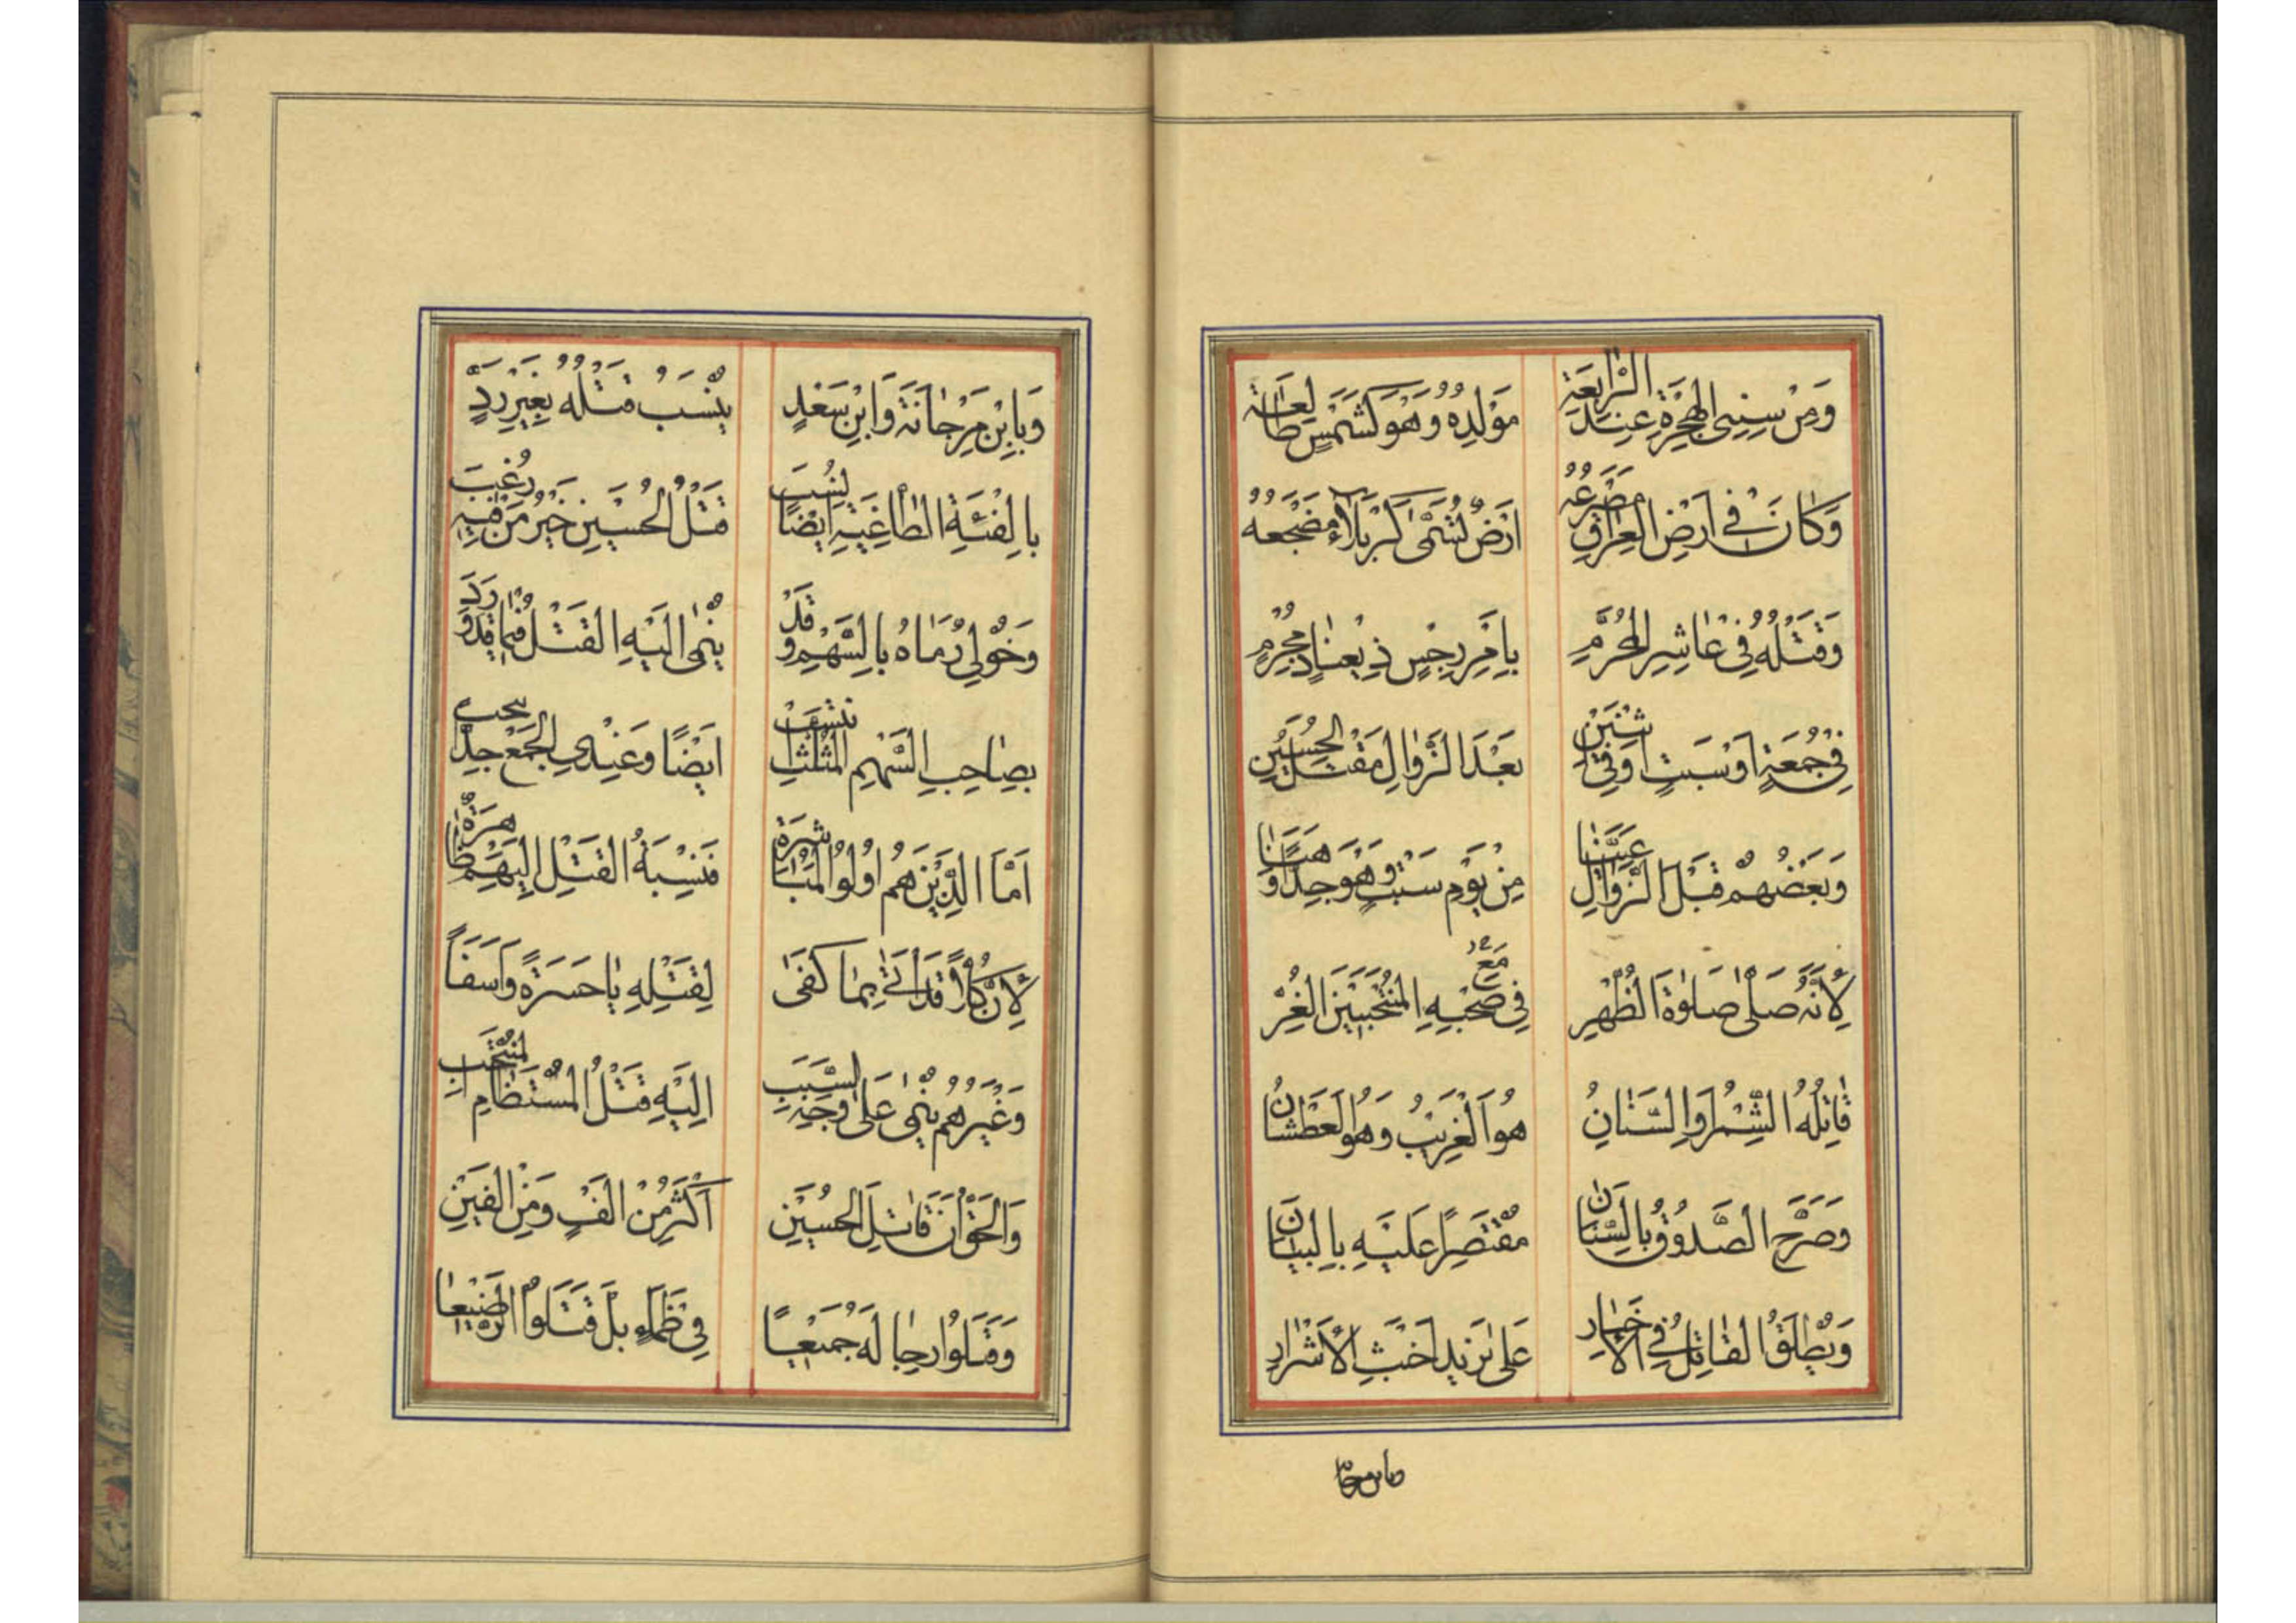 وَمِنْ سِنِىِ الْهِجْرَةِ عِنْدَ الرَّابِعَةِ مَوْلِدُهُ وَهُوَ كَشَمْسٍ طَالِعَة
وَكَانَ فِي اَرْضِ الْعِرَاقِ مَصْرَعُهُ اَرْضٌ تُسَمَّى كَرْبَلَاءَ مَضْجَعُهُ
وَقَتْلُهُ فِي عَاشِرِ الْمُحَرَّمِ بِاَمْرِ رِجْسٍ ذِي عِنَادٍ مُجْرِمٍ
فِي جُمُعَةٍ اَوْ سَبْتٍ اَوْ فِي اثْنَيْنِ بَعْدَ الزَّوَالِ مَقْتَلُ الْحُسَيْنِ
وَبَعْضُهُمْ قَبْلَ الزَّوَالِ عَيَّنَا مِنْ يَوْمِ سَبْتٍ وَهُوَ جِدًّا وَهَنَا
لِاَنَّهُ صَلَّى صَلوٰةَ الظُّهْرِ فِي صَحْبِهِ الْمُنْتَجَبِينَ الْغُرِّ
مَعَ
قَاتِلُهُ الشِّمْرُ وَالسَّنَانُ هُوَ الْغَرِيبُ وَهُوَ الْعَطْشَانُ
وَصَرَّحَ الصَّدُوقُ بِالسِّنَانَ مُقْتَصِرًا عَلَيْهِ بِالْبَيَانَ
وَيُطْلَقُ الْقَاتِلُ فِي الْاَخْبَارِ عَلَى يَزِيدَ اَخْبَثِ الْاَشْرَارِ
وبابن مرجانة
وَبِابْنِ مَرْجَانَةَ وَابْنِ سَعْدٍ يُنْسَبُ قَتْلُهُ بِغَيْرِ رَدٍّ
بِالْفِئَةِ الطَّاغِيَةِ اَيْضًا نُسِبَ قَتْلُ الْحُسَيْنِ خَيْرُ مَنْ فِيهِ رُغِبَ
وَخَوْلِي رَمَاهُ بِالسَّهْمِ وَقَدْ يُنْمَى اِلَيْهِ الْقَتْلُ فِيمَا قَدْ وَرَدَ
بِصَاحِبِ السَّهْمِ الْمُثَلَّثِ اَيْضًا وَعِنْدِي الْجَمْعُ جِدًّا
اَمَّا الَّذِينَ هُمْ اُولُوا الْمُبَاشِرَةْ فَنِسْبَةُ الْقَتْلِ اِلَيْهِمْ ظَاهِرَةْ
لِاَنَّ كُلًّا قَدْ اَتَى بِمَا كَفَى لِقَتْلِهِ يَا حَسْرَةً وَاَسَفَا
وَغَيْرُهُمْ يُنْمَى عَلَى وَجْهِ السَّبَبِ اِلَيْهِ قَتْلُ الْمُسْتَضَامِ الْمُنْتَجَبِ
وَالْحَقُّ اَنَّ قَاتِلَ الْحُسَيْنِ اَكْثَرُ مِنْ اَلْفٍ وَمِنْ اَلْفَيْنِ
وَقَتَلُوا رِجَالَهُ جَمِيعًا فِي ظَمَاءٍ بَلْ قَتَلُوا الرَّضِيعَا